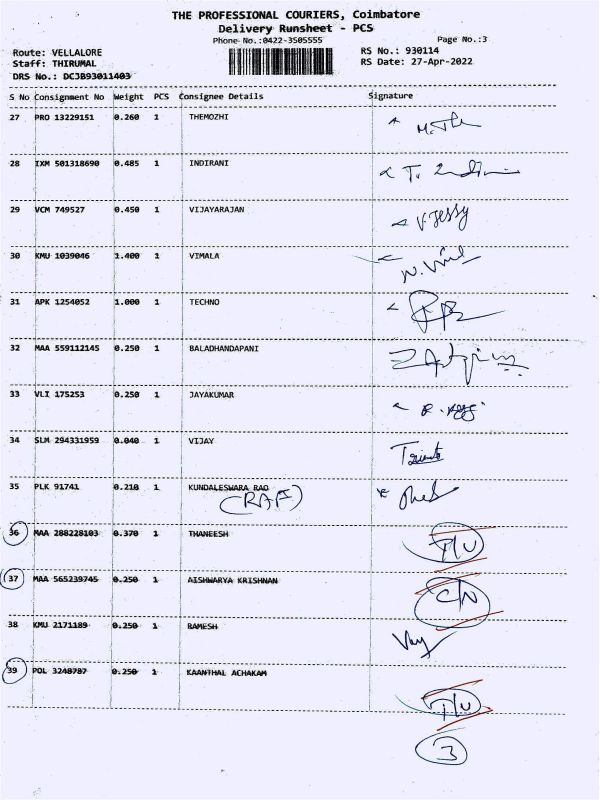 THE PROFESSIONAL COURIERS, Coimbatore
Delivery Runsheet - PCS
Phone No.:0422-3505555 Page No.:3
Route: VELLALORE RS No.: 930114
Staff: THIRUMAL RS Date: 27-Apr-2022
DRS No.: DCJB93011403
S No Consignment No Weight PCS Consignee Details Signature
27 PRO 13229151 0.260 1 THEMOZHI
28 IXM 501318690 0.485 1 INDIRANI
29 VCM 749527 0.450 1 VIJAYARAJAN V.Jessy
30 KMU 1039046 1.400 1 VIMALA
31 APK 1254052 1.000 1 TECHNO
32 MAA 559112145 0.250 1 BALADHANDAPANI
33 VLI 175253 0.250 1 JAYAKUMAR
34 SLM 294331959 0.040 1 VIJAY
35 PLK 91741 0.210 1 KUNDALESWARA RAO
36 MAA 288228103 0.370 1 THANEESH
37 MAA 565239745 0.250 1 AISHWARYA KRISHNAN C/N
38 KMU 2171189 0.250 1 RAMESH
39 POL 3248787 0.250 1 KAANTHAL ACHAKAM
3